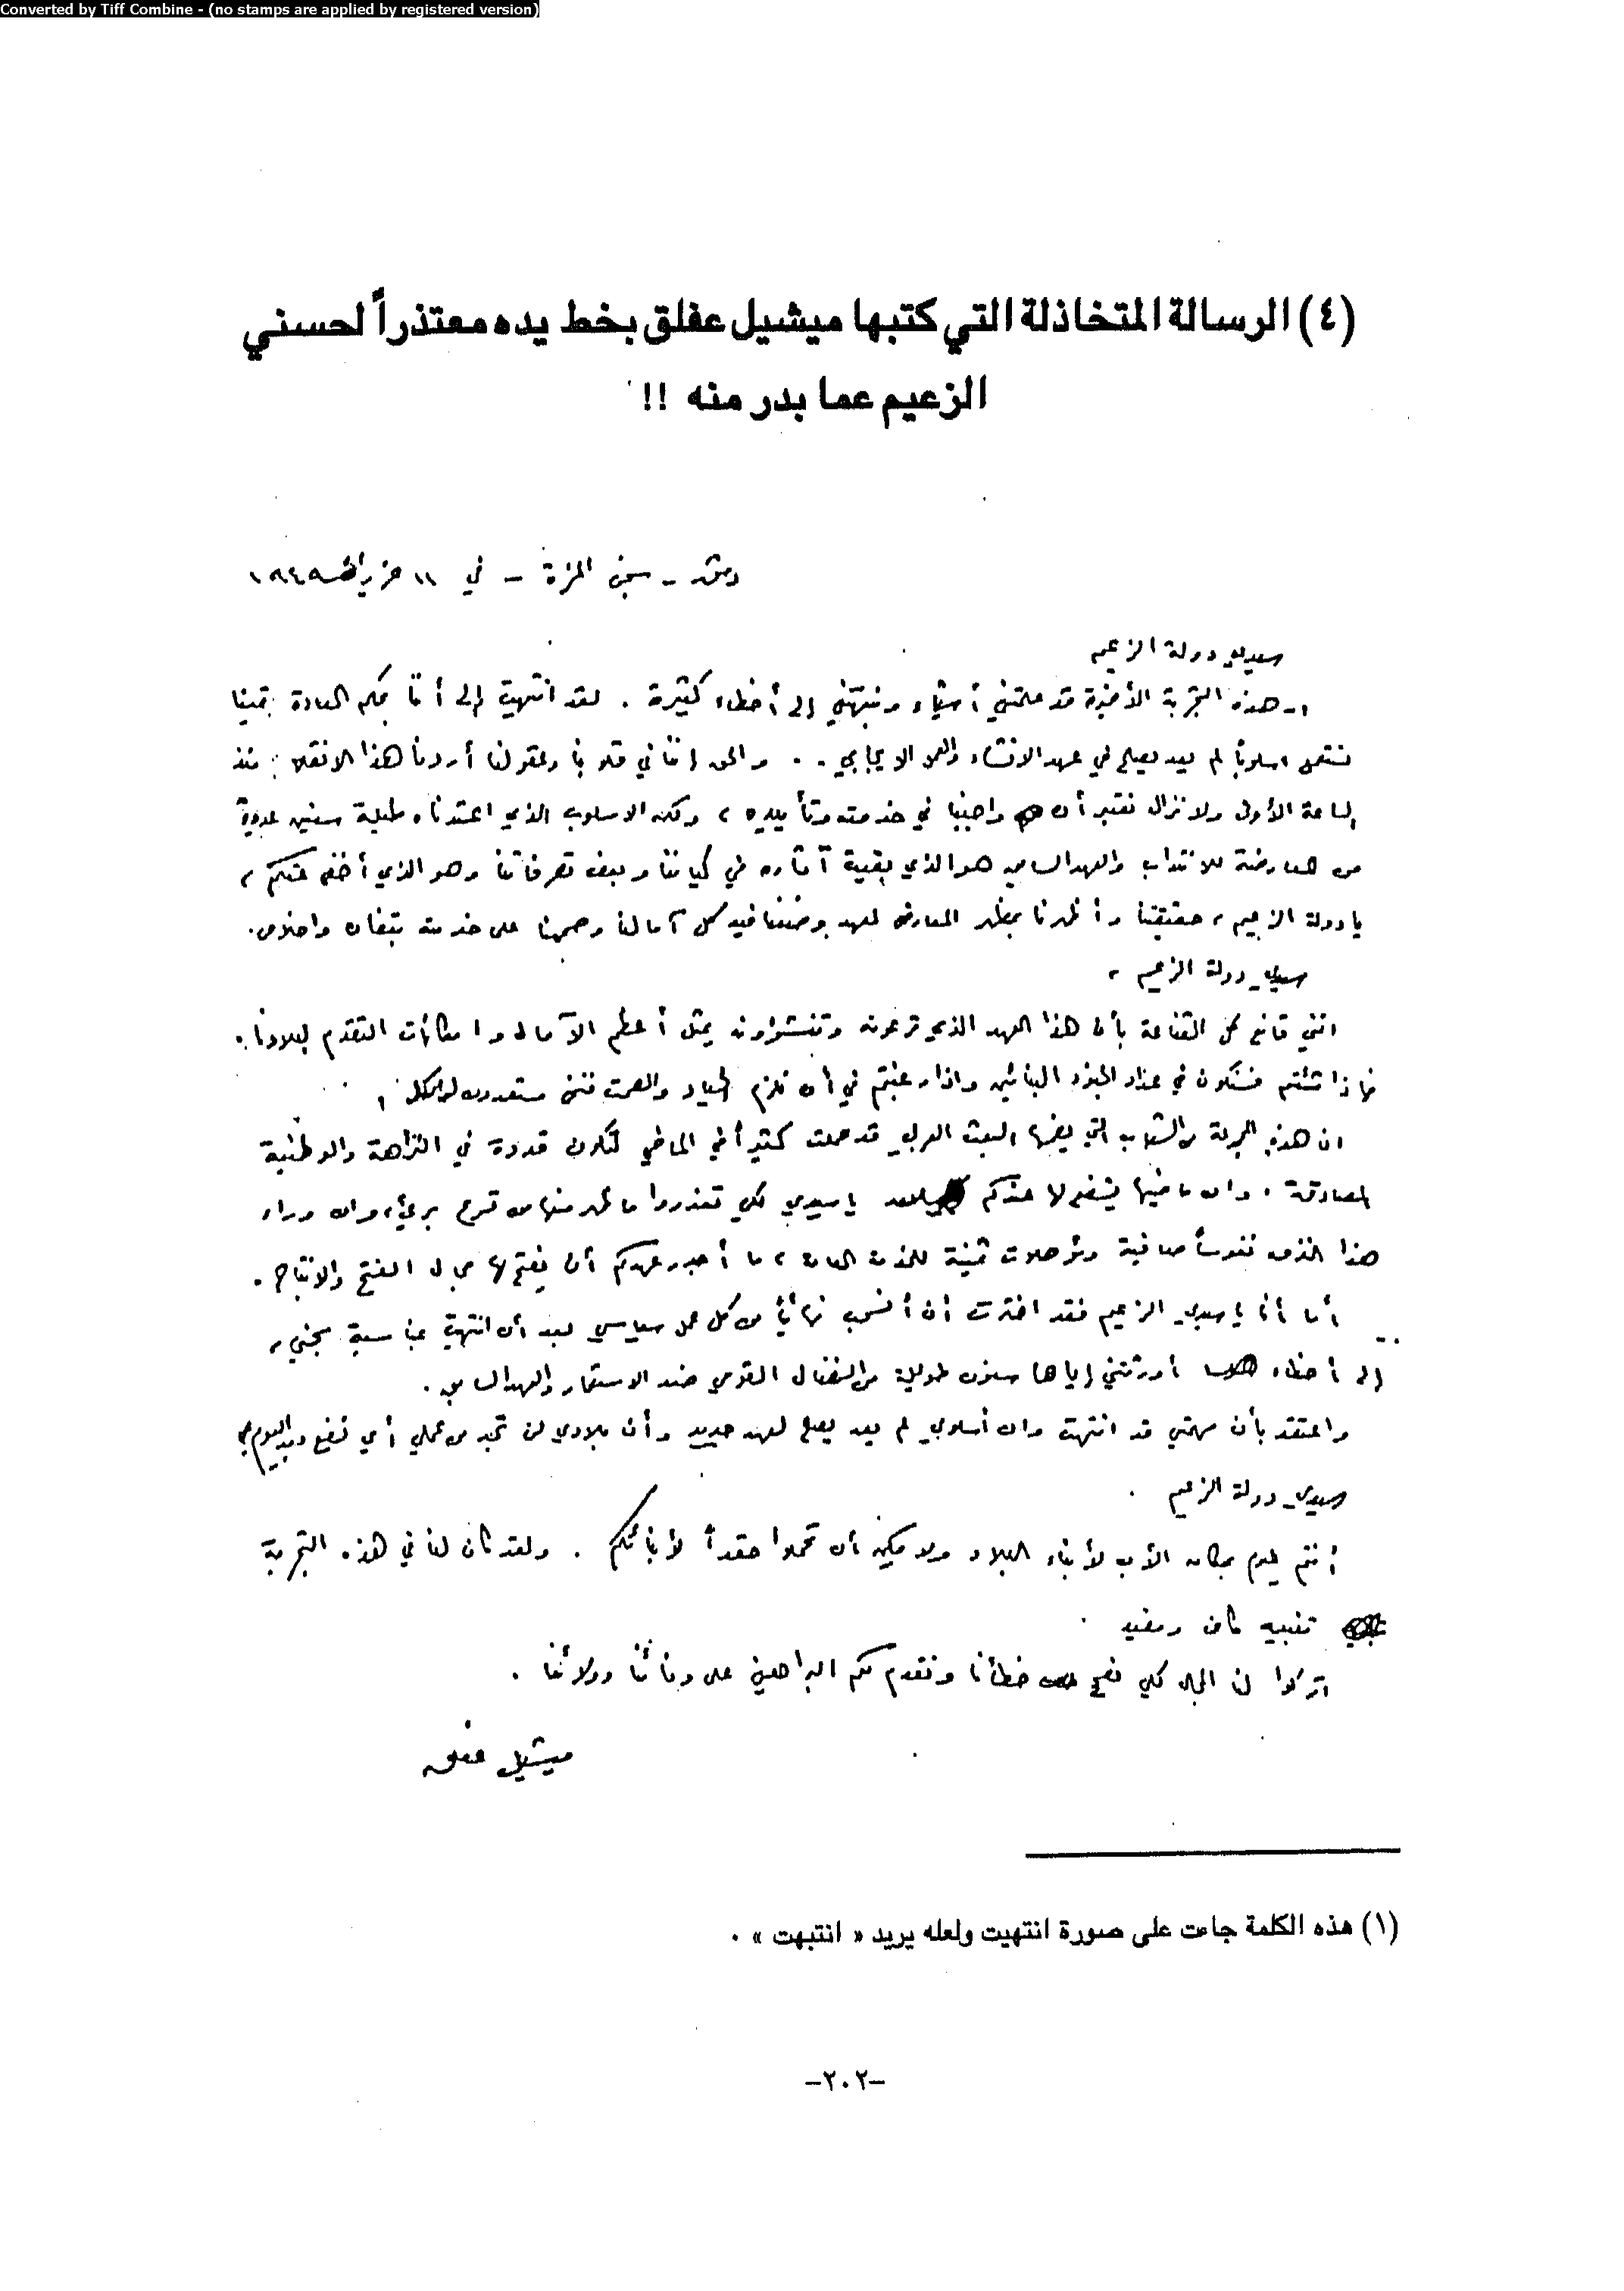 Converted by Tiff Combine - (no stamps are applied by registered version)
(٤) الرسالة المتخاذلة التي كتبها ميشيل عفلق بخط يده معتذراً لحسني
الزعيم عما بدر منه !!
دمشق - سجن المزة - في ١١ حزيران ١٩٤٩
سيدي دولة الزعيم
ان هذه التجربة الأخيرة قد علمتني أشياء ونبهتني إلى أخطاء كثيرة . لقد انتهيت إلى أننا بحكم العادة بقينا
نستعمل اسلوباً لم يعد يصلح في عهد الانشاء والعمل الايجابي .. والحق إننا في قلوبنا وعقولنا أردنا هذا الانقلاب منذ
الساعة الأولى ولا نزال نعتبر أن واجبنا في خدمته وتأييده ، ولكن الاسلوب الذي اعتدناه طيلة سنين عديدة
من المعارضة للانتداب والعهد السابق هو الذي بقيت آثاره في كياننا وبعض تصرفاتنا وهو الذي أخفى عنكم ،
يا دولة الزعيم ، حقيقتنا وأظهرنا بمظهر المعارض لعهد وضعنا فيه كل آمالنا وصممنا على خدمته بتفان واخلاص .
سيدي دولة الزعيم ،
انني قانع كل القناعة بأن هذا العهد الذي ترعونه وتنشؤونه يمثل أعظم الآمال وامكانيات التقدم لبلادنا .
فاذا شئتم فسنكون في عداد الجنود البنائين واذا رغبتم في أن نلزم الحياد والصمت فنحن مستعدون لذلك .
ان هذه المجموعة من الشباب التي يضمها البعث العربي قد عملت كثيراً في الماضي لتكون قدوة في النزاهة والوطنية
الصادقة . وان ماضيها يشفع لها عندكم يا سيدي لكي تعذروا ما ظهر منها من تسرع بريء ، وان وراء
هذا النزق نفوساً صافية ومؤهلات ثمينة للخدمة العامة ، ما أجدر عهدكم أن يفتح لها مجال الفتح والانتاج .
أما أنا يا سيدي الزعيم فقد اخترت أن أنسحب نهائياً من كل عمل سياسي بعد أن انتهيت بمناسبة سجني ،
إلى أخطاء أورثتني إياها سنون طويلة من النضال القومي ضد الاستعمار والعهد السابق .
واعتقد بأن مهمتي قد انتهت وان أسلوبي لم يعد يصلح لعهد جديد وأن بلادي لن تجد من عملي أي نفع بعد اليوم
سيدي دولة الزعيم .
أنتم اليوم بمكان الأب لأبناء البلاد ولا يمكن أن تحملوا حقداً لأبنائكم . ولقد كان لنا في هذه التجربة
تنبيه كاف ومفيد .
اتركوا لنا المجال لكي نصحح خطأنا ونقدم لكم البراهين على وفائنا وولائنا .
ميشيل عفلق
(١) هذه الكلمة جاءت على صورة انتهيت ولعله يريد « انتبهت » .
-٢٠٢-